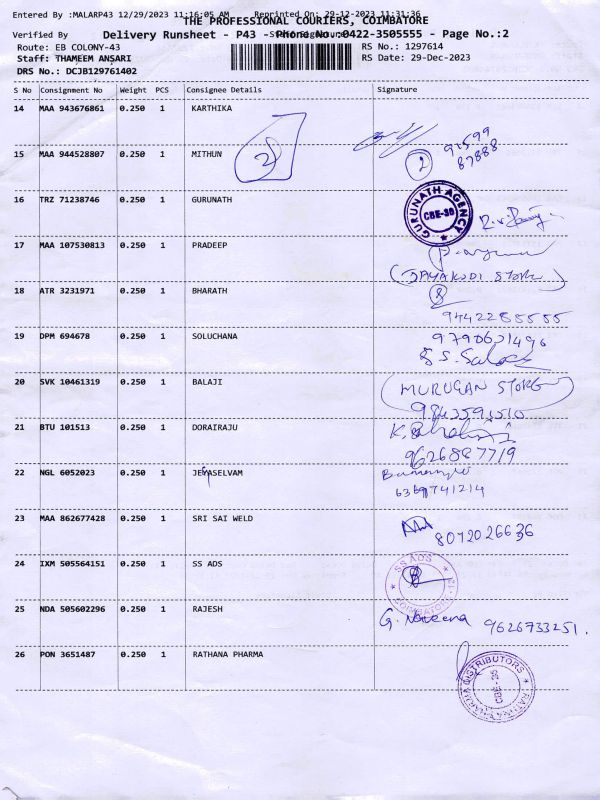 Entered By :MALARP43 12/29/2023 11:16:05 AM Reprinted On: 29-12-2023 11:31:36
THE PROFESSIONAL COURIERS, COIMBATORE
Verified By Delivery Runsheet - P43 - Phone No.:0422-3505555 - Page No.:2
Route: EB COLONY-43 RS No.: 1297614
Staff: THAMEEM ANSARI RS Date: 29-Dec-2023
DRS No.: DCJB129761402
S No Consignment No Weight PCS Consignee Details Signature
14 MAA 943676861 0.250 1 KARTHIKA
15 MAA 944528807 0.250 1 MITHUN 2 91599
87888
16 TRZ 71238746 0.250 1 GURUNATH GURUNATH AGENCY CBE-38
17 MAA 107530813 0.250 1 PRADEEP
(JAYAKODI STORE)
18 ATR 3231971 0.250 1 BHARATH 8
9442285555
19 DPM 694678 0.250 1 SOLUCHANA 9790621496
20 SVK 10461319 0.250 1 BALAJI MURUGAN STORE
9843593510
21 BTU 101513 0.250 1 DORAIRAJU
9626887719
22 NGL 6052023 0.250 1 JEYASELVAM
6369741214
23 MAA 862677428 0.250 1 SRI SAI WELD 8072026636
24 IXM 505564151 0.250 1 SS ADS SS ADS COIMBATORE
25 NDA 505602296 0.250 1 RAJESH G. Naveena 9626733251.
26 PON 3651487 0.250 1 RATHANA PHARMA DISTRIBUTORS